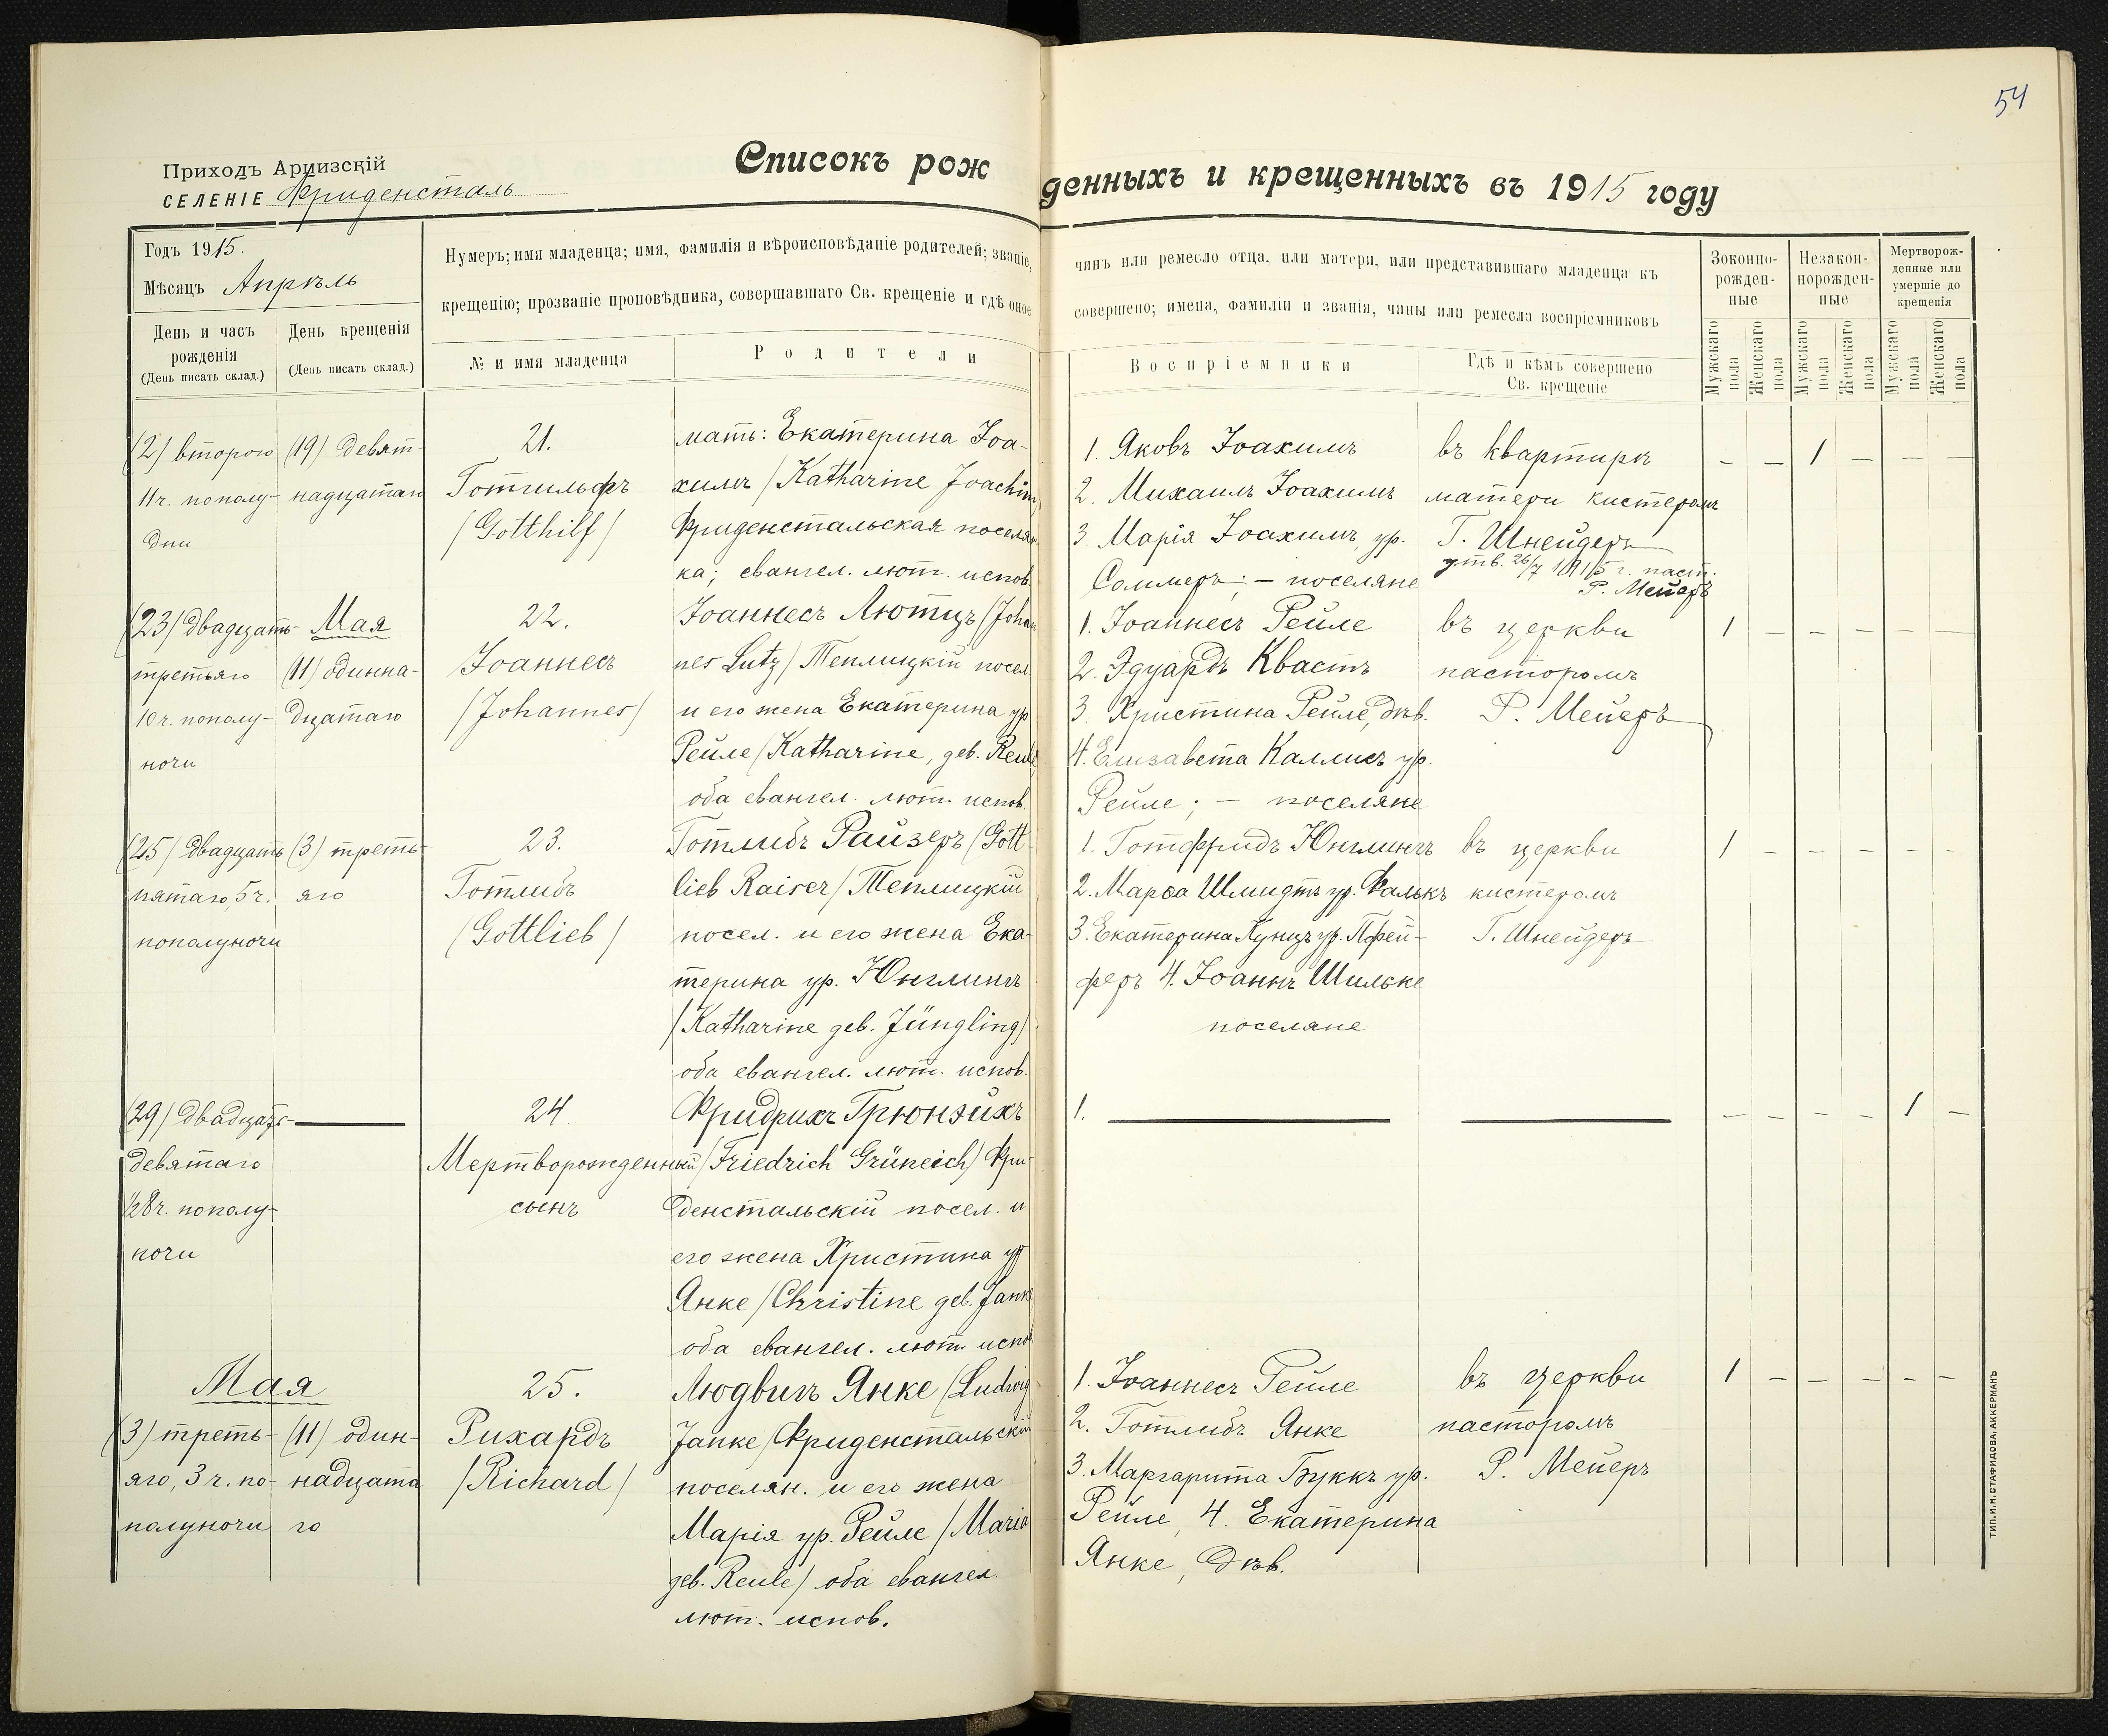 54
Приходъ Арцизскій
СЕЛЕНІЕ Фриденсталь
Списокъ рож
денныхъ и крещенныхъ въ 1915 году
Годъ 1915.
Мѣсяцъ Апрѣль
День и часъ рожденія
(День писать склад.)
День крещенія
(День писать склад.)
Нумеръ; имя младенца; имя, фамилія и вѣроисповѣданіе родителей; званіе,
крещенію; прозваніе проповѣдника, совершавшаго Св. крещеніе и гдѣ оное
№ и имя младенца
Родители
чинъ или ремесло отца, или матери, или представившаго младенца къ
совершено; имена, фамиліи и званія, чины или ремесла воспріемниковъ
Воспріемники
Гдѣ и кѣмъ совершено
Св. крещеніе
Зоконно-
рожден-
ные
Незакон-
норожден-
ные
Мертворож-
денные или
умершіе до
крещенія
Мужскаго пола
Женскаго пола
Мужскаго пола
Женскаго пола
Мужскаго пола
Женскаго пола
(2) второго
11 ч. пополу-
дни
(19) девят-
надцатаго
21.
Готгильфъ
/Gotthilf/
мать: Екатерина Іоа-
химъ /Katharine Joachim,
Фриденстальская поселян
ка; евангел. лют. испов.
1. Яковъ Іоахимъ
2. Михаилъ Іоахимъ
3. Марія Іоахимъ, ур.
Соммеръ; – поселяне
въ квартирѣ
матери кистеромъ
Г. Шнейдеръ
утв. 26/7 1915 г. паст.
Р. Мейеръ
– – 1 – – –
(23) двадцать
третьяго
10 ч. пополу-
ночи
Мая
(11) одинна-
дцатаго
22.
Іоаннесъ
/Johannes/
Іоаннесъ Лютцъ /Johan
nes Lutz/ Теплицкій посел.
и его жена Екатерина ур.
Рейле /Katharine, geb. Reule
оба евангел. лют. испов.
1. Іоаннесъ Рейле
2. Эдуардъ Квастъ
3. Христина Рейле, дѣв.
4. Елизавета Каллисъ ур.
Рейле; – поселяне
въ церкви
пасторомъ
Р. Мейеръ
1 – – – – –
(25) двадцать
пятаго, 5 ч.
пополуночи
(3) треть-
яго
23.
Готлибъ
/Gottlieb/
Готлибъ Райзеръ /Gott-
lieb Raiser/ Теплицкій
посел. и его жена Ека-
терина ур. Юнглингъ
/Katharine geb. Jüngling/
оба евангел. лют. испов.
1. Готфридъ Юнглингъ
2. Марѳа Шмидтъ ур. Фалькъ
3. Екатерина Кунцъ ур. Пфей-
феръ 4. Іоаннъ Шильке
поселяне
въ церкви
кистеромъ
Г. Шнейдеръ
1 – – – – –
(29) двадцать-
девятаго
½8 ч. пополу-
ночи
24.
Мертворожденный
сынъ
Фридрихъ Грюнэйхъ
/Friedrich Grüneich/ Фри-
денстальскій посел. и
его жена Христина ур.
Янке /Christine geb. Janke
оба евангел. лют. испов
1.
– – – – 1 –
Мая
(3) треть-
яго, 3 ч. по-
полуночи
(11) один-
надцата
го
25.
Рихардъ
/Richard/
Людвигъ Янке /Ludwig
Janke/ Фриденстальскій
поселян. и его жена
Марія ур. Рейле /Maria
geb. Reule/ оба евангел.
лют. испов.
1. Іоаннесъ Рейле
2. Готлибъ Янке
3. Маргарита Буккъ ур.
Рейле, 4. Екатерина
Янке, дѣв.
въ церкви
пасторомъ
Р. Мейеръ
1 – – – – –
ТИП. И. Н. СТАФИДОВА, АККЕРМАНЪ